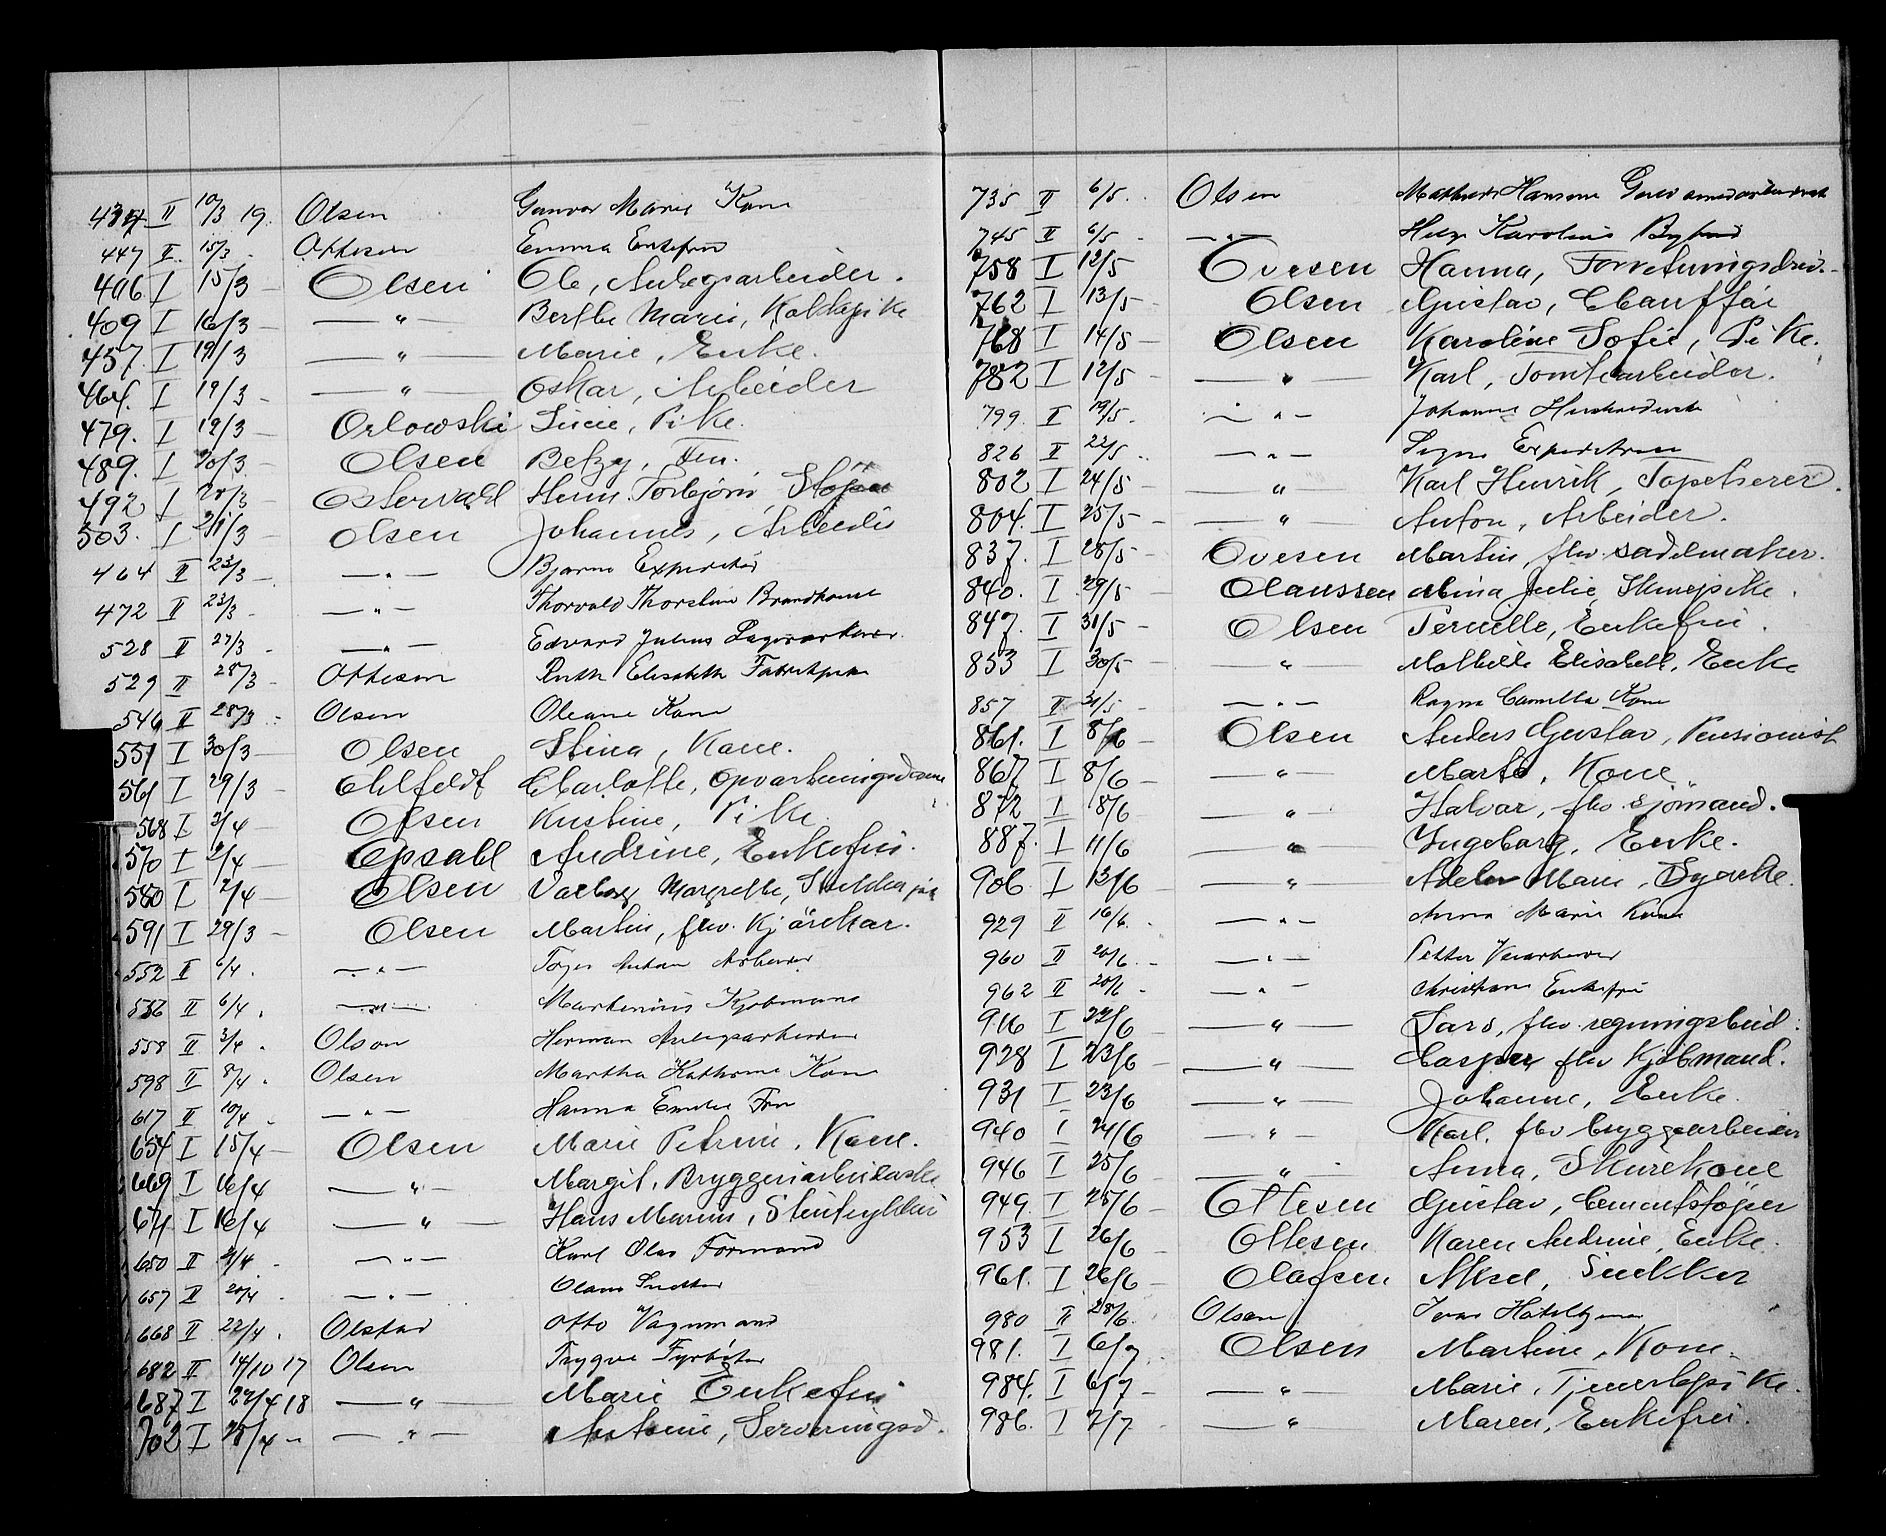 437 II 10/3 19. Olsen Gunvor Marie Kone
447 II 15/3 - Ottesen Emma Enkefru
406 I 15/3 — Olsen Ole, Anlegsarbeider.
409 I 16/3 — —"— Berthe Marie, Kokkepike
457. I 19/3 —"— Marie, Enke.
464. I 19/3 — —"— Oskar, Arbeider
479. I 19/3 — Orlowski Lucie, Pike.
489. I 20/3 — Olsen Betzy, Frn.
492 I 20/3 — Ostervahl Herm. Torbjørn
503. I 21/3 — Olsen Johannes, Arbeider
464 II 23/3 —. —"— Bjarne Expeditør
472 II 23/3 - —"— Thorvald Thorstein
528 II 27/3 - —"— Edvard Julius Lagerarbeider.
529 II 28/3 - Ottesen Ruth Elisabeth Fabrikpike
546 II 28/3 - Olsen Oleane Kone
551 I 30/3 — Olsen Stina, Kone.
561 I 29/3 — Ohlfeldt Charlotte, Opvartningsdame
568 I 2/4 — Olsen Kristine, Pike
570 I 2/4 — Opsahl Andrine, Enkefru.
580 I 2/4 — Olsen Valborg Margrethe,
591 I 29/3 — Olsen Martin, flv. Kjørekar.
552 II 6/4. —"— Anton Arbeider
556 II 6/4. —"— Martinius Kjøbmand
558 II 3/4. Olson Herman Anlegsarbeider
598 II 8/4. Olsen Martha Kathrine Kone
617 II 10/4. —"— Hanna Emilie Fru
654 I 15/4 — Olsen Marie Petrine, Kone.
669 I 16/4 —"— Margit, Bryggeriarbeiderske
671. I 16/4 —"— Hans Marius,
650 II 21/4 - —"— Karl Olav Formand
657 II 20/4 - —"— Olaus Snekker
668 II 22/4. Olstad Otto Vognmand
682 II 14/10 17 Olsen Trygve Fyrbøter
687 I 22/4 18 —"— Marie Enkefru
702 I 28/4 — —"— Antonie, Serveringsd.
735 II 6/5. Olsen
745 II 6/5 - —"— Helge Karolius Bybud
758 I 12/5 Ovesen Hanna, Forretningsdriv.
762 I 13/5 - Olsen Gustav, Chauffør
768 I 14/5 — Olsen Karoline Sofie, Pike.
782 I 12/5 - —"— Karl, Tomtearbeider.
799. II 19/5. —"— Johanne Husholderske
826 II 22/5. —"— Signe Expeditrice
802 I 24/5 — —"— Karl Henrik, Tapetserer.
804. I 25/5 — —"— Anton, Arbeider.
837. I 28/5 — Ovesen Martin, flv. sadelmaker.
840. I 29/5 — Olaussen Mina Julie,
847. I 31/5 — Olsen Pernelle, Enkefru.
853 I 30/5 — —"— Mathilde Elisabeth, Enke
857 II 31/5 - —"— Ragna Camilla Kone
861. I 8/6 Olsen Anders Gustav, Pensionist
867 I 8/6 — —"— Marta, Kone.
872 I 8/6 —"— Halvar, flv. sjømand.
887. I 11/6 —"— Ingeborg, Enke.
906. I 13/6 —"— Marie,
929 II 16/6. —"— Anna Marie Kone
960 II 20/6.- —"— Petter
962 II 20/6 - —"— Christiane Enkefru
916 I 22/6 —"— Lars, flv. regningsbud.
928 I 23/6 — —"— Casper flv Kjøbmand.
931 I 23/6 —"— Johanne, Enke.
940 I 24/6 —"— Karl, flv bryggearbeider
946 I 25/6 —"— Anna, Skurekone
949. I 25/6 — Ottesen Gustav, Cementstøper
953 I 26/6 — Ottesen Karen Andrine, Enke.
961. I 26/6 — Olafsen Aksel, Snekker
980 II 28/6. Olsen
981. I 6/7. Olsen Martine, Kone.
984. I 6/7 — —"— Marie, Tjenestepike.
986. I 7/7. —"— Maren, Enkefru.